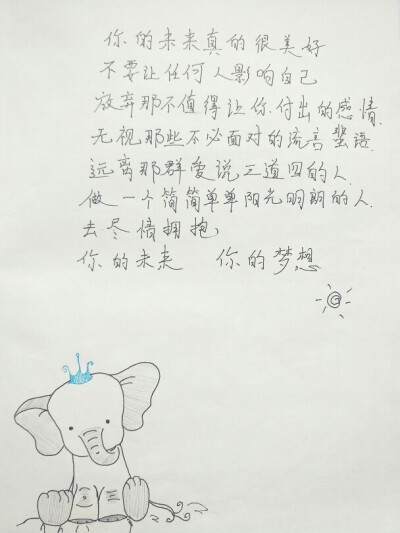 你的未来真的很美好
不要让任何人影响自己
放弃那不值得让你付出的感情.
无视那些不必面对的流言蜚语.
远离那群爱说三道四的人.
做一个简简单单阳光明朗的人.
去尽情拥抱,
你的未来 你的梦想